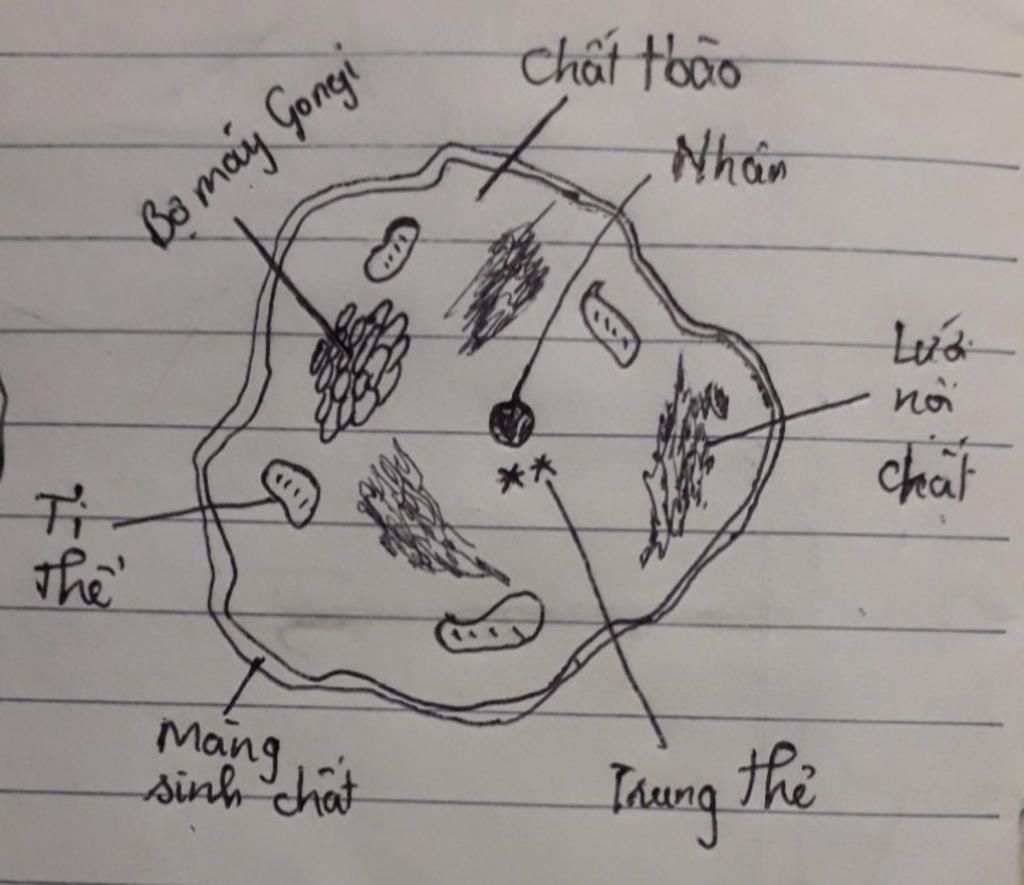 Chất tbào
Bộ máy Gongi
Nhân
Lưới
nội
chất
Ti
thể
Màng
sinh chất
Trung thể